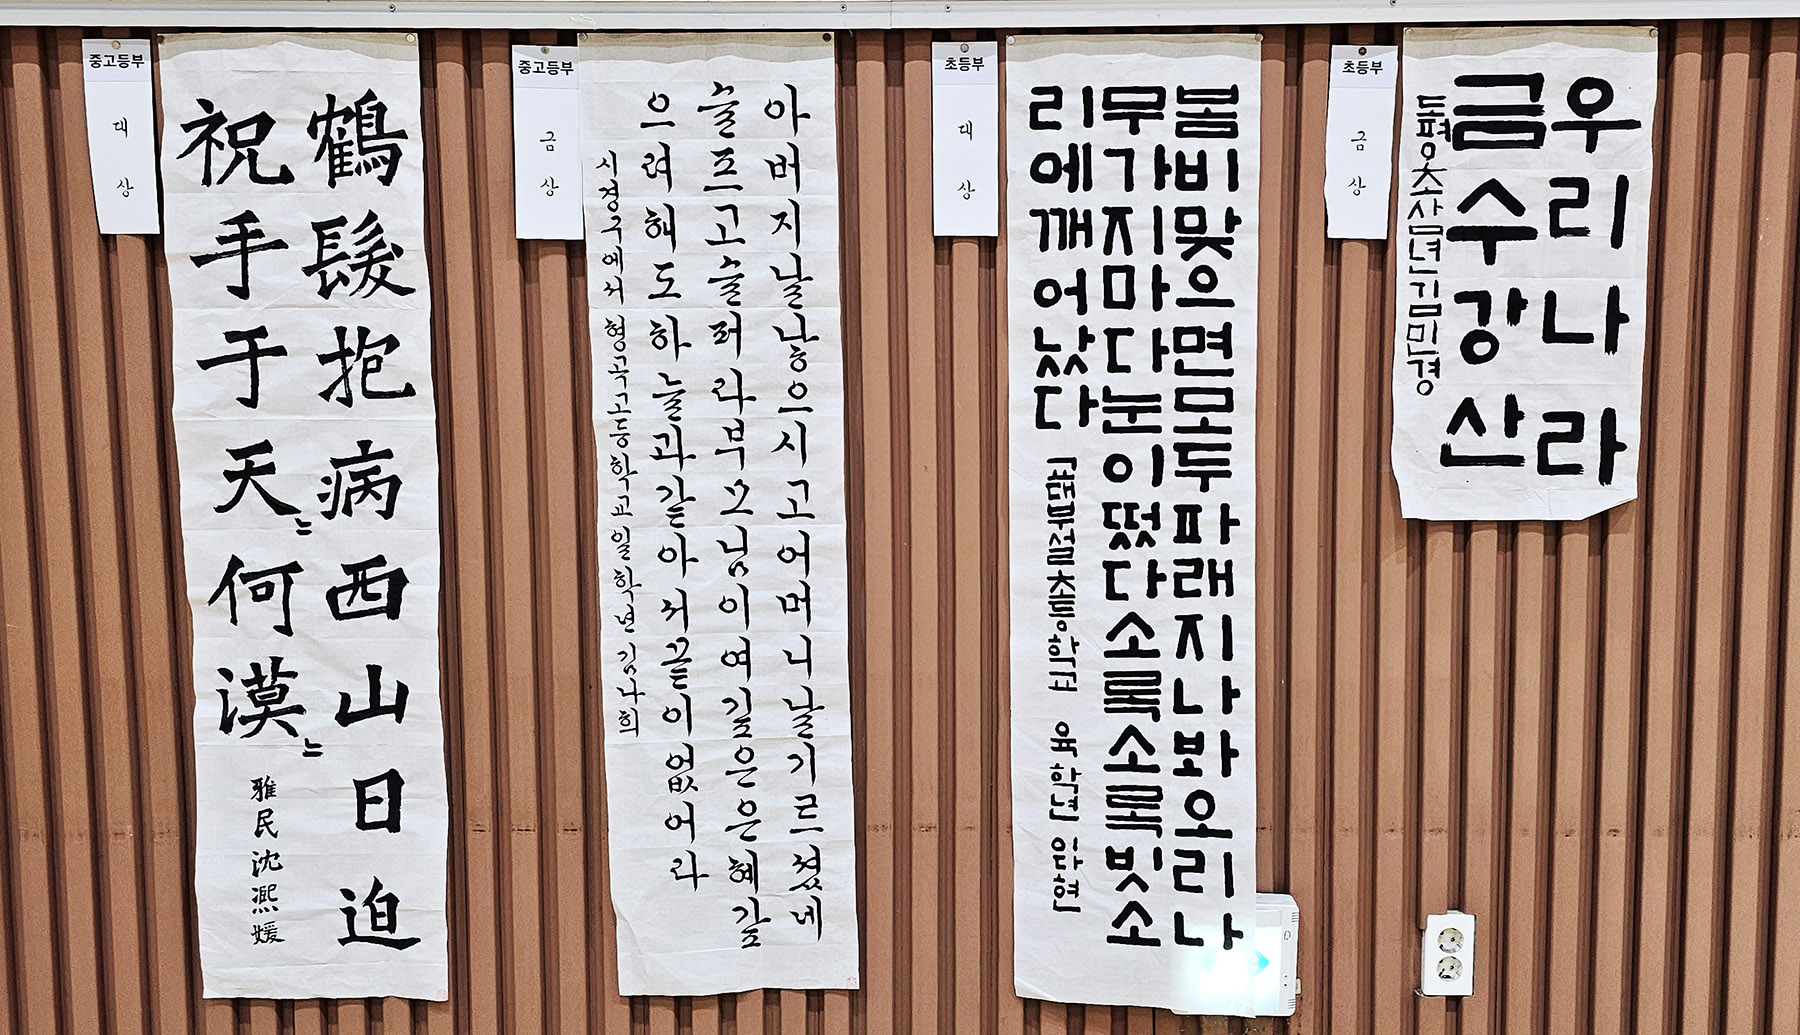 중고등부
대상
鶴髮抱病西山日迫
祝手于天〻何漠〻
雅民沈凞媛
중고등부
금상
아버지날낳으시고어머니날기르셨네
슬프고슬퍼라부모님이여깊은은혜갚
으려해도하늘과같아서끝이없어라
시경구에서 형곡고등학교일학년김나희
초등부
대상
봄비맞으면모두파래지나봐오리나
무가지마다눈이떴다소록소록빗소
리에깨어났다
부설초등학교 육학년
초등부
금상
우리나라
금수강산
도평초삼년김민경